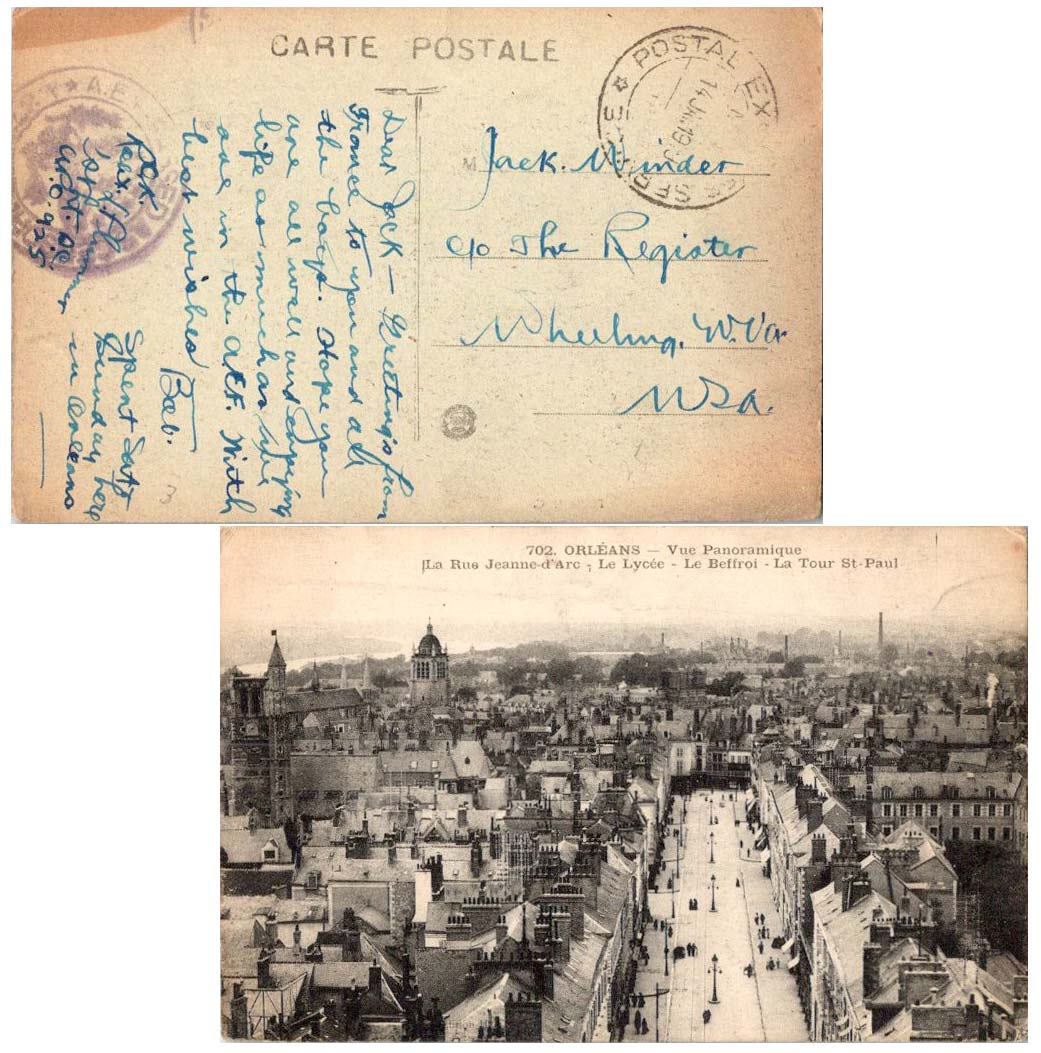 CARTE POSTALE
POSTAL EX
SERVICE
14 JA 19
A.E.F.
Jack. Minder
c/o The Register
Wheeling. W. Va.
USA.
Dear Jack — Greetings from
France to you and all
the boys. Hope you
are all well and enjoying
life as much as we
are in the AEF. With
best wishes Bab.
Pvt.
A.P.O. 925
Spent Sat &
Sunday here
in Orleans
3
702. ORLÉANS — Vue Panoramique
La Rue Jeanne-d'Arc - Le Lycée - Le Beffroi - La Tour St-Paul